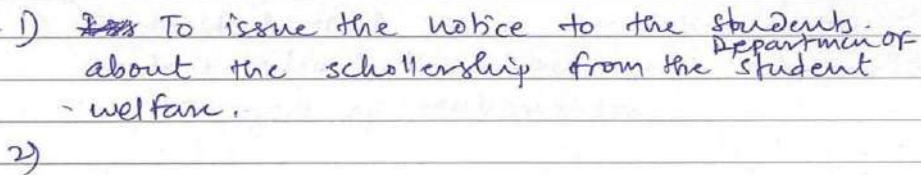 1) To issue the notice to the students.
about the schollership from the Department of student
- welfare.
2)